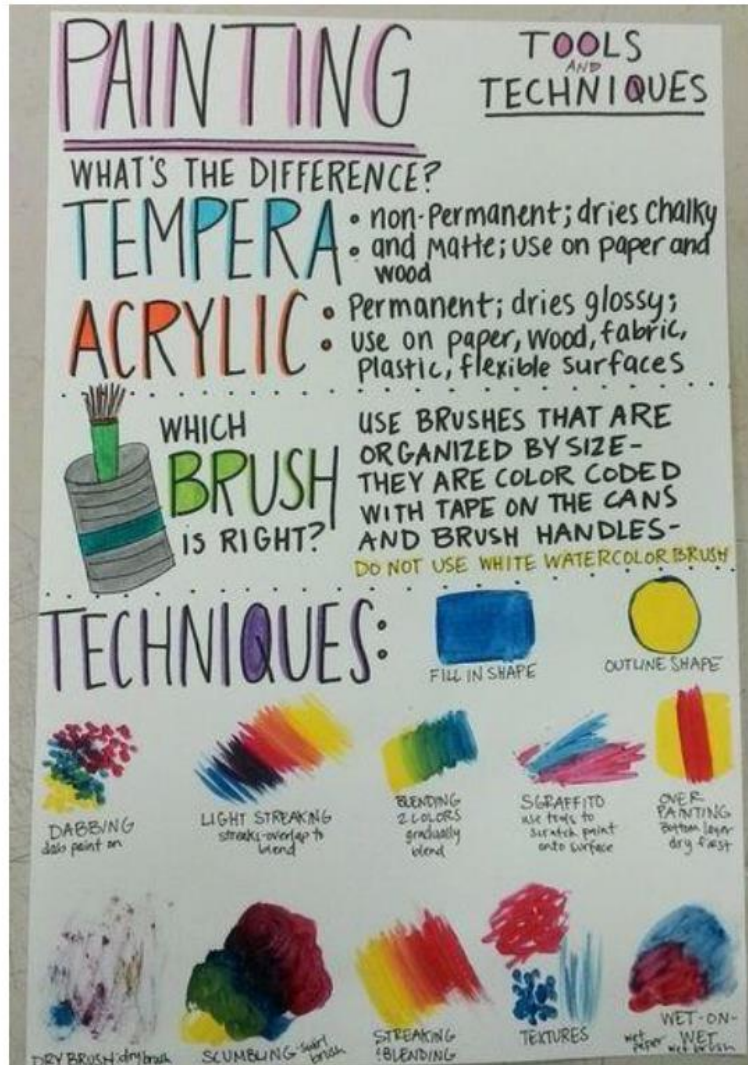 PAINTING
TOOLS
AND
TECHNIQUES
WHAT'S THE DIFFERENCE?
TEMPERA
• non-Permanent; dries chalky
• and Matte; use on paper and
wood
ACRYLIC
• Permanent; dries glossy;
• use on paper, wood, fabric,
Plastic, flexible surfaces
WHICH
BRUSH
IS RIGHT?
USE BRUSHES THAT ARE
ORGANIZED BY SIZE-
THEY ARE COLOR CODED
WITH TAPE ON THE CANS
AND BRUSH HANDLES-
DO NOT USE WHITE WATERCOLOR BRUSH
TECHNIQUES:
FILL IN SHAPE
OUTLINE SHAPE
DABBING
dab paint on
LIGHT STREAKING
streaks-overlap to
blend
BLENDING
2 COLORS
gradually
blend
SGRAFFITO
use tools to
scratch paint
onto surface
OVER
PAINTING
Bottom layer
dry first
DRY BRUSH: dry brush
SCUMBLING-swirl
brush
STREAKING
&BLENDING
TEXTURES
WET-ON-
WET
wet
paper
wet brush